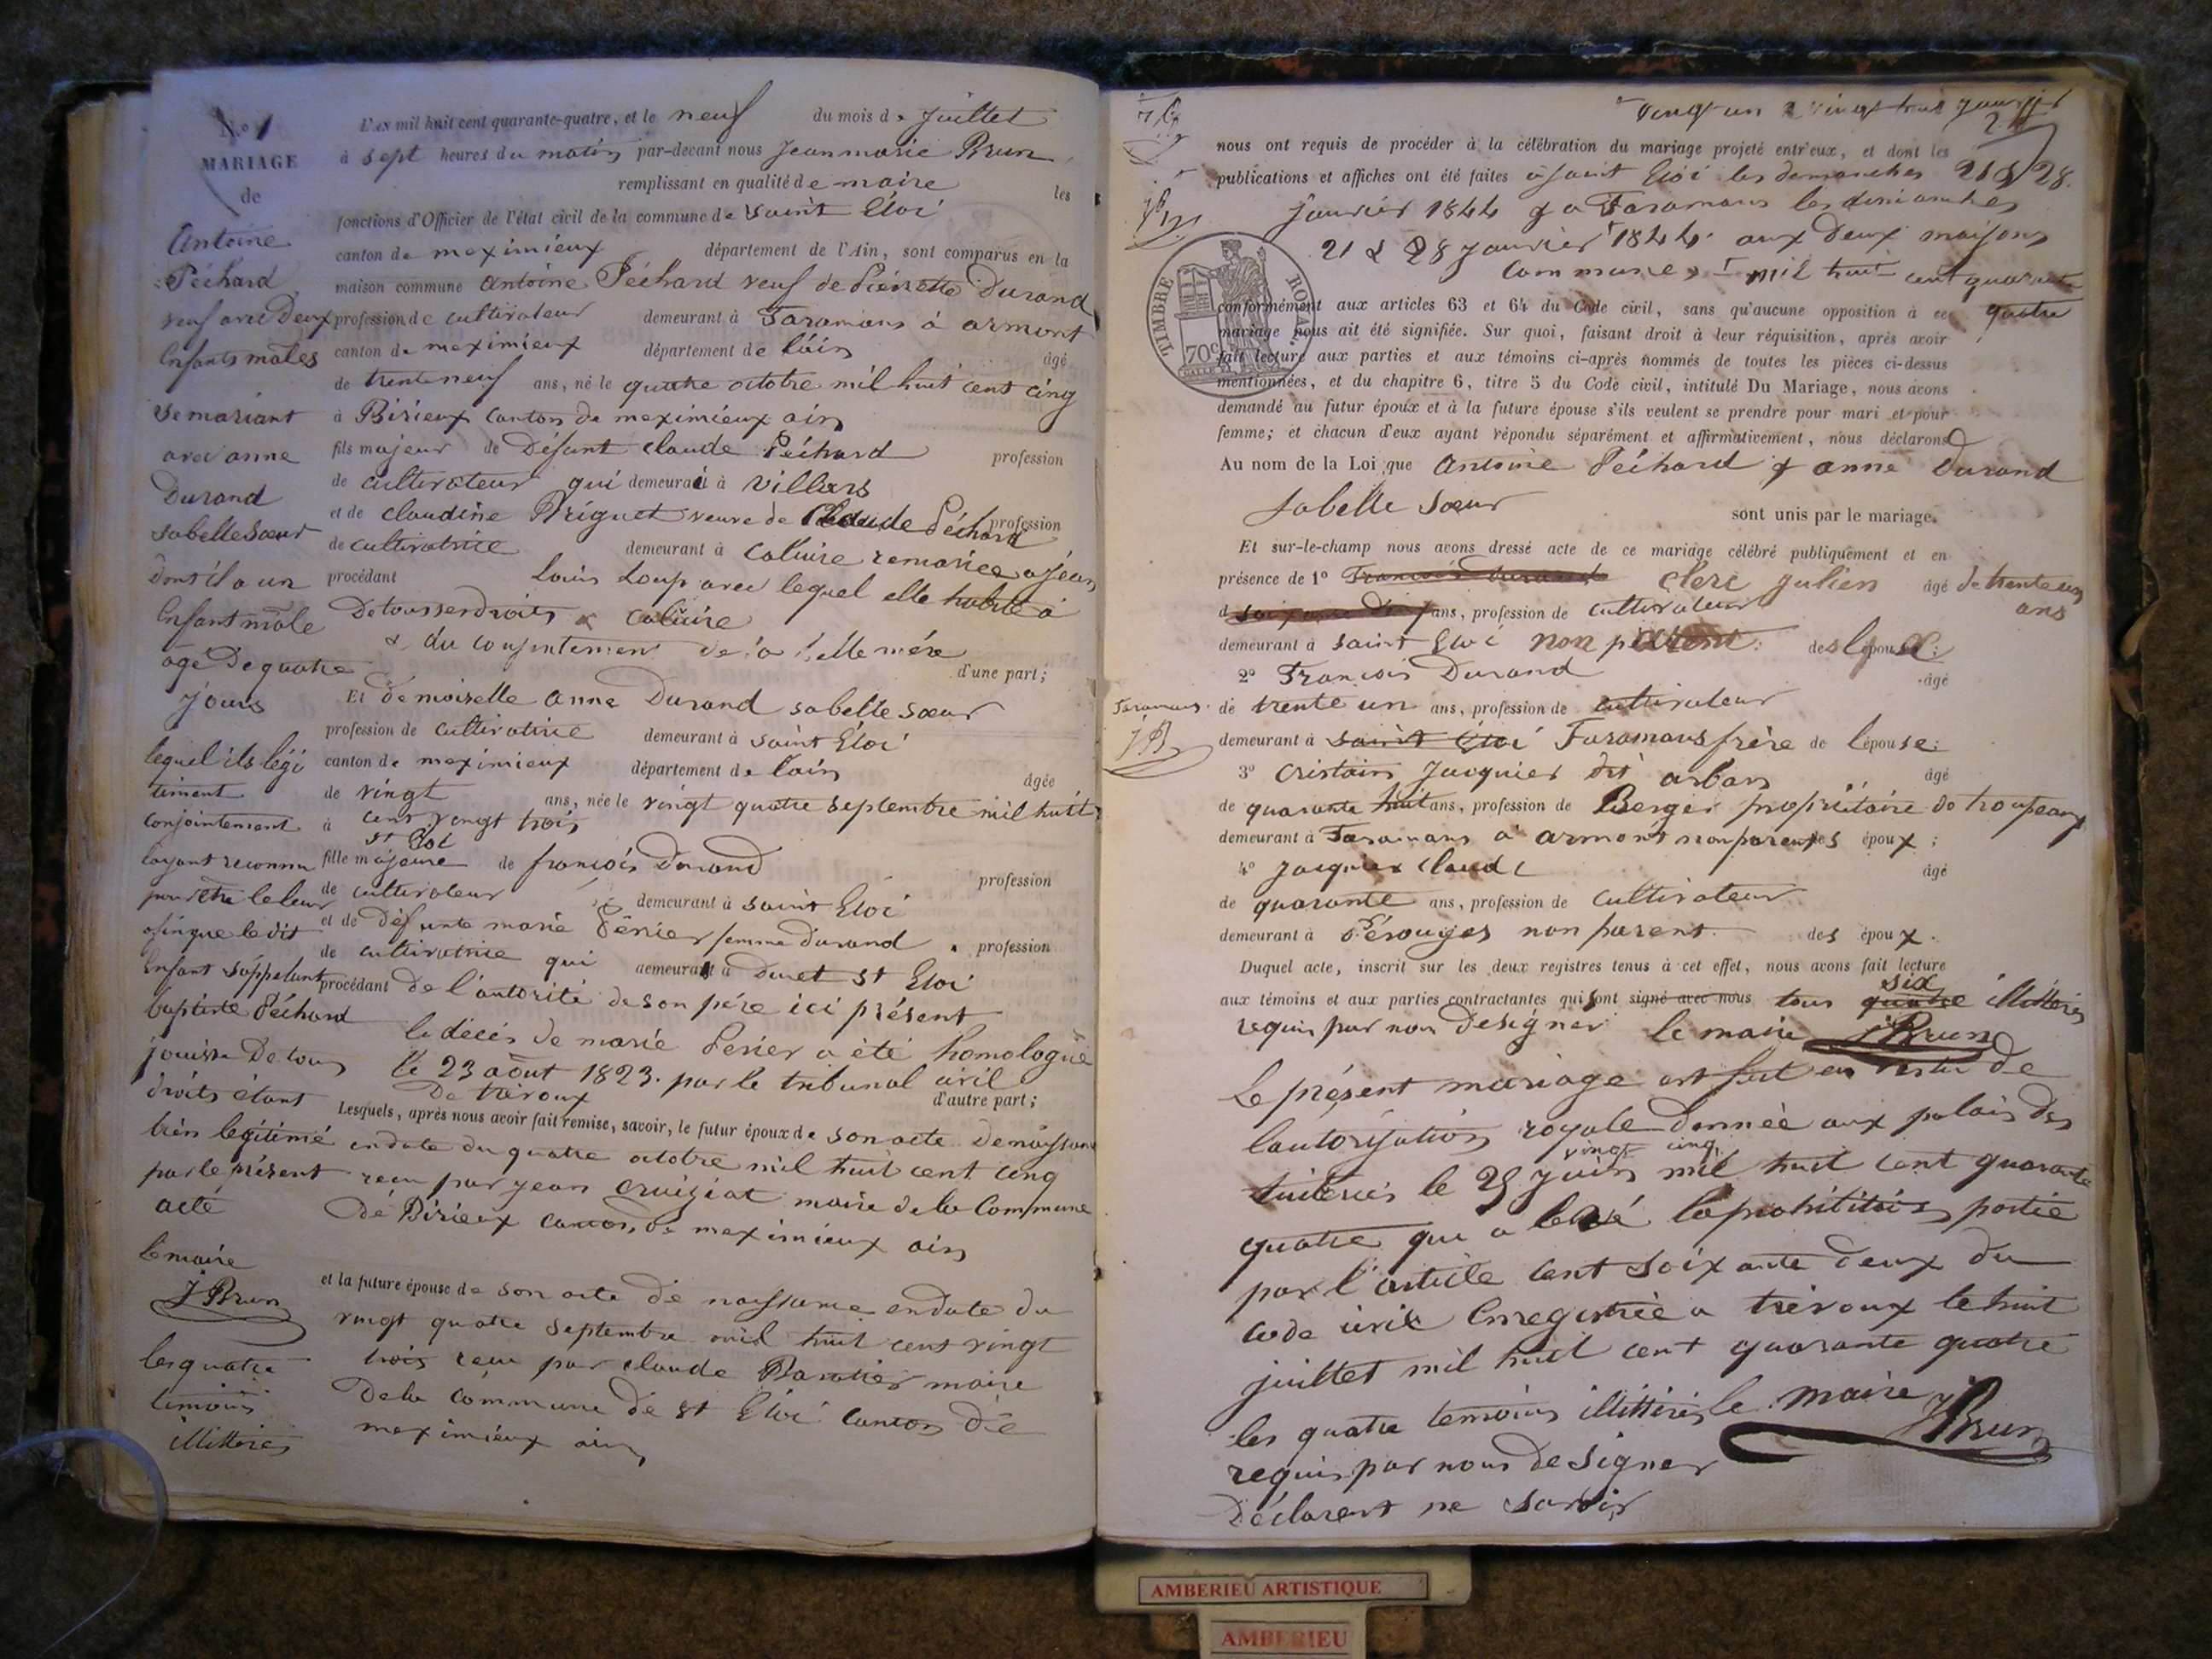 N.o 1
MARIAGE
de
Antoine
Péchard
veuf avec deux
Enfants mâles
se mariant
avec anne
Durand
sa belle sœur
dont il a un
Enfant mâle
âgé de quatre
jours
lequel ils légi
timent
conjointement
layant reconnu
pour être le leur
afin que ledit
Enfant s'appelant
baptiste Péchard
jouisse de tous
droits étant
bien légitimé
par le présent
acte
le maire
J Brun
les quatre
témoins
illittérés
L'AN mil huit cent quarante-quatre, et le neuf du mois de Juillet
à sept heures du matin par-devant nous Jeanmarie Brun
remplissant en qualité de maire les
fonctions d'Officier de l'état civil de la commune de saint Eloi
canton de meximieux département de l'Ain, sont comparus en la
maison commune antoine Péchard veuf de Pierrette Durand
profession de cultivateur demeurant à Faramans à ormont
canton de meximieux département de l'ain âgé
de trente neuf ans, né le quatre octobre mil huit cent cinq
à Birieux canton de meximieux ain
fils majeur de Défunt claude Péchard profession
de cultivateur qui demeurait à villars
et de claudine Briguet veuve de Claude Péchard profession
de cultivatrice demeurant à caluire remariée a jean
procédant Louis Loup avec lequel elle habite à
De tous ses droits & caluire
& du consentement de sa belle mère
d'une part;
Et demoiselle anne Durand sa belle sœur
profession de cultivatrice demeurant à saint Eloi
canton de meximieux département de lain âgée
de vingt ans, née le vingt quatre septembre mil huit
à cent vingt trois
St Eloi
fille majeure de françois durand profession
de cultivateur demeurant à saint Eloi
et de défunte marie Périer femme durand profession
de cultivatrice qui demeurait à Druet St Eloi
procédant De l'autorité de son père ici présent
le décès de marie Perier a été homologué
le 23 août 1823. par le tribunal civil
De trévoux d'autre part;
Lesquels, après nous avoir fait remise, savoir, le futur époux de son acte de naissance
en date du quatre octobre mil huit cent cinq
recu par jean cruiziat maire de la commune
de Birieux canton de meximieux ain
et la future épouse de son acte de naissance en date du
vingt quatre septembre mil huit cent vingt
trois recu par claude maire
De la commune de st Eloi canton de
meximieux ain
vingt un & vingt huit janvier
nous ont requis de procéder à la célébration du mariage projeté entr'eux, et dont les
publications et affiches ont été faites à saint Eloi les dimanches 21 & 28
janvier 1844 & a Faramans les dimanches
21 & 28 janvier 1844 aux deux maisons
communes mil huit cent quarante
quatre
TIMBRE ROYAL.
70c
conformément aux articles 63 et 64 du Code civil, sans qu'aucune opposition à ce
mariage nous ait été signifiée. Sur quoi, faisant droit à leur réquisition, après avoir
fait lecture aux parties et aux témoins ci-après nommés de toutes les pièces ci-dessus
mentionnées, et du chapitre 6, titre 5 du Code civil, intitulé Du Mariage, nous avons
demandé au futur époux et à la future épouse s'ils veulent se prendre pour mari et pour
femme; et chacun d'eux ayant répondu séparément et affirmativement, nous déclarons
Au nom de la Loi que antoine Péchard & anne Durand
sa belle sœur sont unis par le mariage.
Et sur-le-champ nous avons dressé acte de ce mariage célébré publiquement et en
présence de 1o François Durand clerc julien âgé de trente un
ans
ans, profession de cultivateur
demeurant à saint Eloi non parent des époux;
2o François Durand âgé
Faramans.
JB
de trente un ans, profession de cultivateur
demeurant à saint Eloi Faramans frère de lépouse;
3o cristain Jacquier dit arban âgé
de quarante huit ans, profession de Berger propriétaire de troupeaux
demeurant à Faramans à ormont non parent des époux;
4o Jacquier claude âgé
de quarante ans, profession de cultivateur
demeurant à Pérouges non parent des époux.
Duquel acte, inscrit sur les deux registres tenus à cet effet, nous avons fait lecture
aux témoins et aux parties contractantes qui sont signé avec nous tous quatre six illittérés
requis par nous de signer le maire JBrun
Le présent mariage est fait en vertu de
lautorisation royale donnée aux palais des
vingt cinq
tuileries le 25 juin mil huit cent quarante
quatre qui a levé la prohibition portée
par l'article cent soixante deux du
code civil Enregistrée a trévoux le huit
juillet mil huit cent quarante quatre
les quatre témoins illittérés le maire JBrun
requis par nous de signer
Déclarent ne savoir
AMBERIEU ARTISTIQUE
AMBERIEU